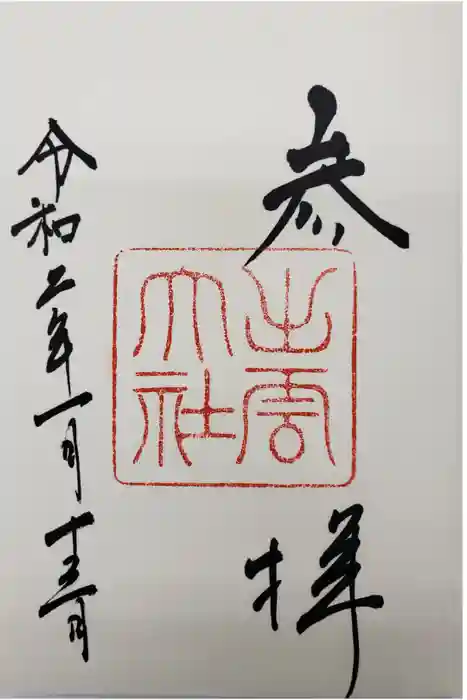 参拝
出雲
大社
令和二年一月十五日